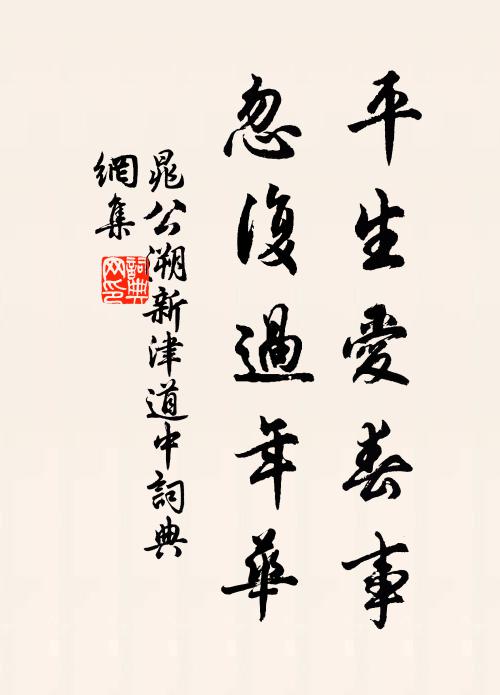 平生愛春事
忽復過年華
晁公溯新津道中詞典
網集
詞典
网印